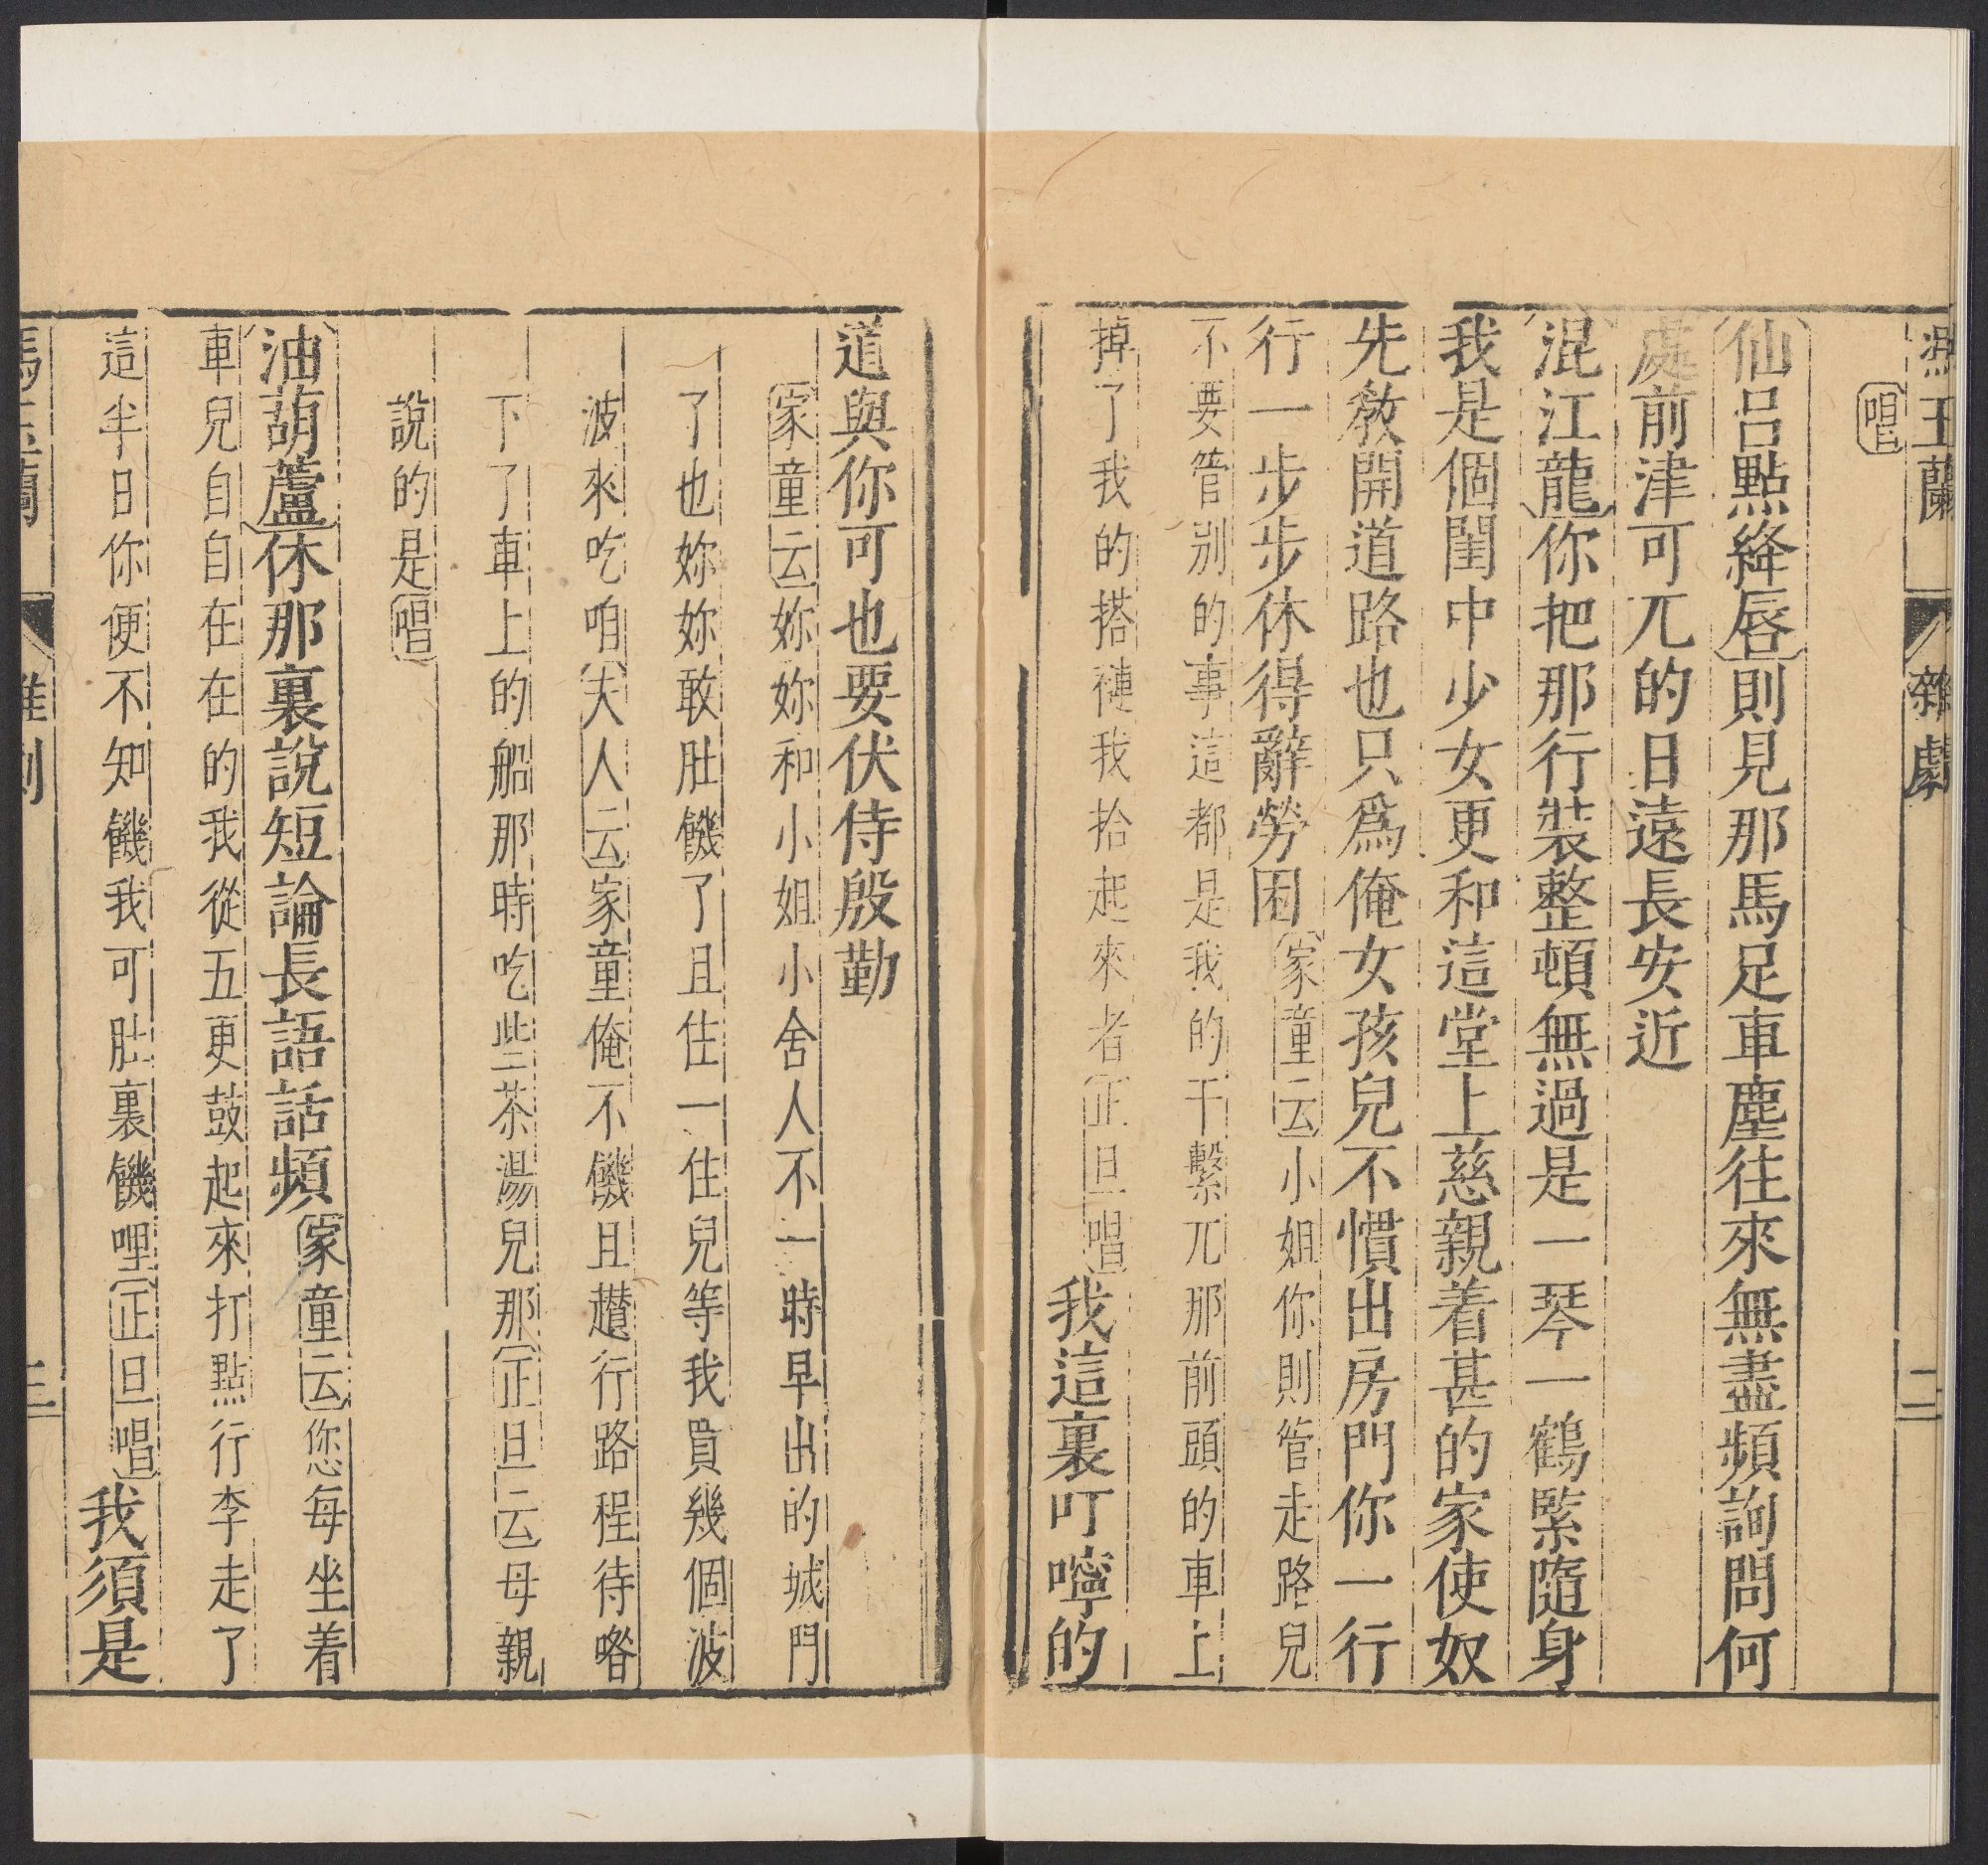 王蘭 雜劇 二
唱
仙呂點絳唇則見那馬足車塵往來無盡頻詢問何
處前津可兀的日遠長安近
混江龍你把那行裝整頓無過是一琴一鶴緊隨身
我是個閨中少女更和這堂上慈親着甚的家使奴
先教開道路也只爲俺女孩兒不慣出房門你一行
行一步步休得辭勞困家童云小姐你則管走路兒
不要管別的事這都是我的干繫兀那前頭的車上
掉了我的搭褳我拾起來者正旦唱我這裏叮嚀的
道與你可也要伏侍殷勤
家童云妳妳和小姐小舍人不一時早出的城門
了也妳妳敢肚饑了且住一住兒等我買幾個波
波來吃咱夫人云家童俺不饑且趲行路程待喒
下了車上的船那時吃些茶湯兒那正旦云母親
說的是唱
油葫蘆休那裏說短論長語話頻家童云您每坐着
車兒自自在在的我從五更鼓起來打點行李走了
這半日你便不知饑我可肚裏饑哩正旦唱我須是